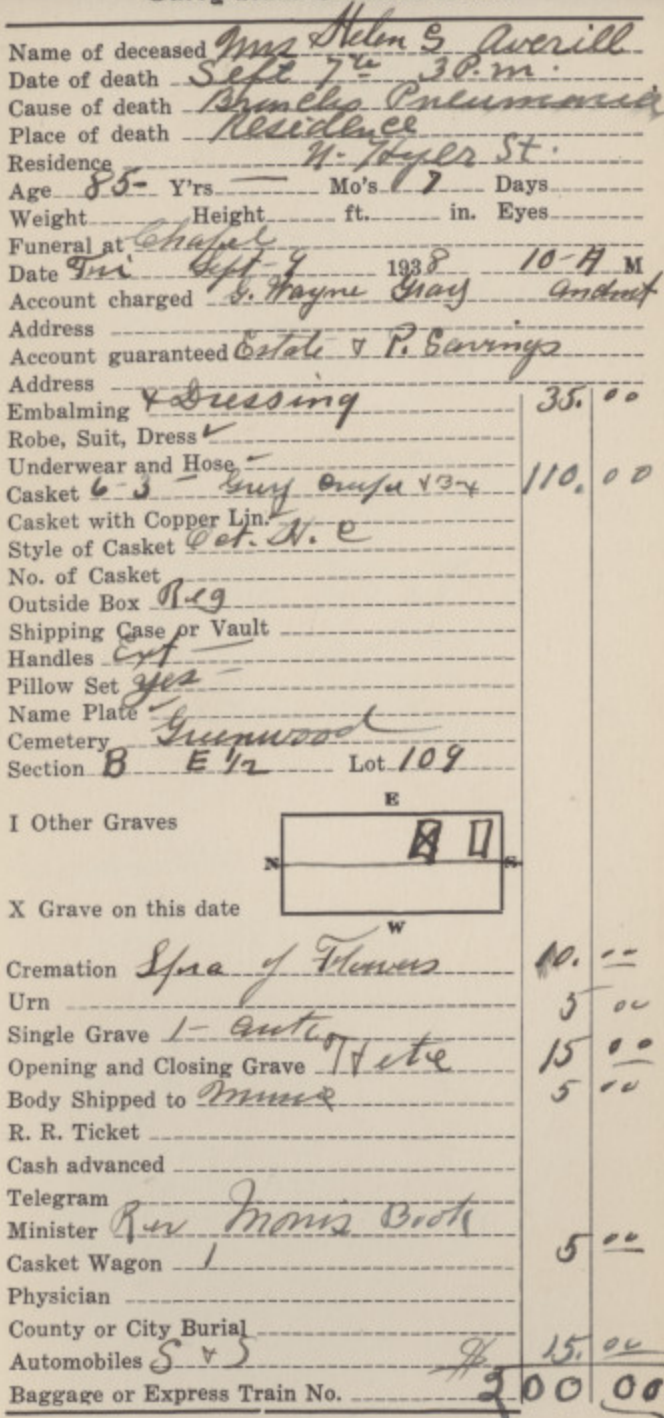 Name of deceased Mrs Helen S Averill
Date of death Sept 7th 3 P.m.
Cause of death Broncho Pneumonia
Place of death Residence
Residence N. Hyer St.
Age 85 - Y'rs — Mo's 7 Days
Weight Height ft. in. Eyes
Funeral at Chapel
Date Fri Sept-9 1938 10-A M
Account charged G. Wayne Gray
Address
Account guaranteed Estate & P. Savings
Address
Embalming & Dressing 35. 00
Robe, Suit, Dress ✓
Underwear and Hose -
Casket 6-3 - Grey 110. 00
Casket with Copper Lin.
Style of Casket Oct.
No. of Casket
Outside Box Reg
Shipping Case or Vault
Handles Ext —
Pillow Set yes -
Name Plate ✓
Cemetery Greenwood
Section B E 1/2 Lot 109
E
I Other Graves
N S
X Grave on this date
W
Cremation Spra of Flowers 10. 00
Urn 5 00
Single Grave 1-
Opening and Closing Grave 15 00
Body Shipped to Music 5 00
R. R. Ticket
Cash advanced
Telegram
Minister Rev Morris Book
Casket Wagon 1 5 00
Physician
County or City Burial
Automobiles S & S 15. 00
Baggage or Express Train No. $ 200 00